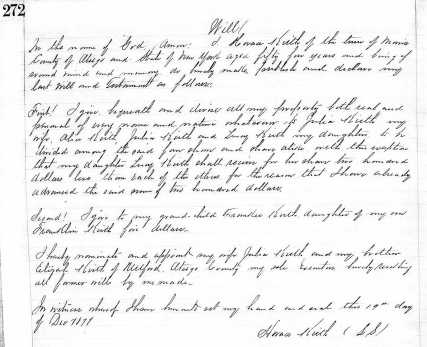 272
Will
In the name of God, Amen. I Horace Keith of the town of Maris
County of Otsego and State of New York aged fifty four years and being of
sound mind and memory do hereby make publish and declare my
last Will and Testament as follows.
First! I give, bequeath and devise all my property both real and
personal of every name and nature whatsoever to Julia Keith my
wife, Alice Keith, Julia Keith and Lucy Keith my daughters, to be
divided among the said four share and share alike with this exception
that my daughter Lucy Keith shall receive for her share two hundred
dollars less than each of the others for the reason that I have already
advanced the said sum of two hundred dollars.
Second! I give to my grand-child Franklie Keith daughter of my son
Franklin Keith five dollars.
I hereby nominate and appoint my wife Julia Keith and my brother
Elijah Keith of Milford, Otsego County my sole Executors hereby revoking
all former wills by me made.
In witness whereof I have hereunto set my hand and seal this 19th day
of Dec
Horace Keith (L.S.)